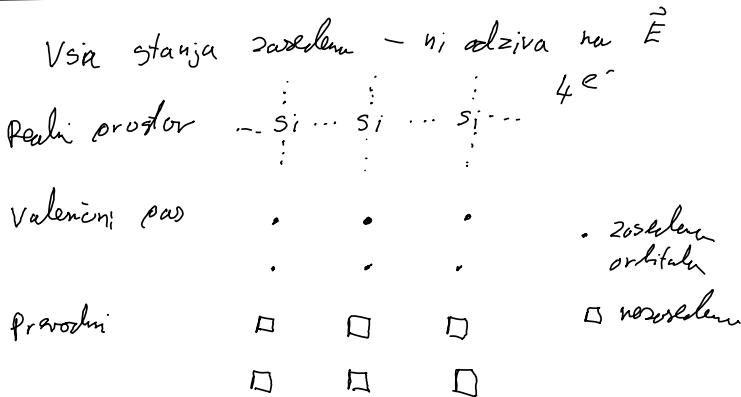 Vsa stanja zasedena – ni odziva na E⃗
4 e⁻
Realni prostor ... Si ... Si ... Si ...
Valenčni pas
. zasedena
orbitala
Prevodni
□ nezasedena